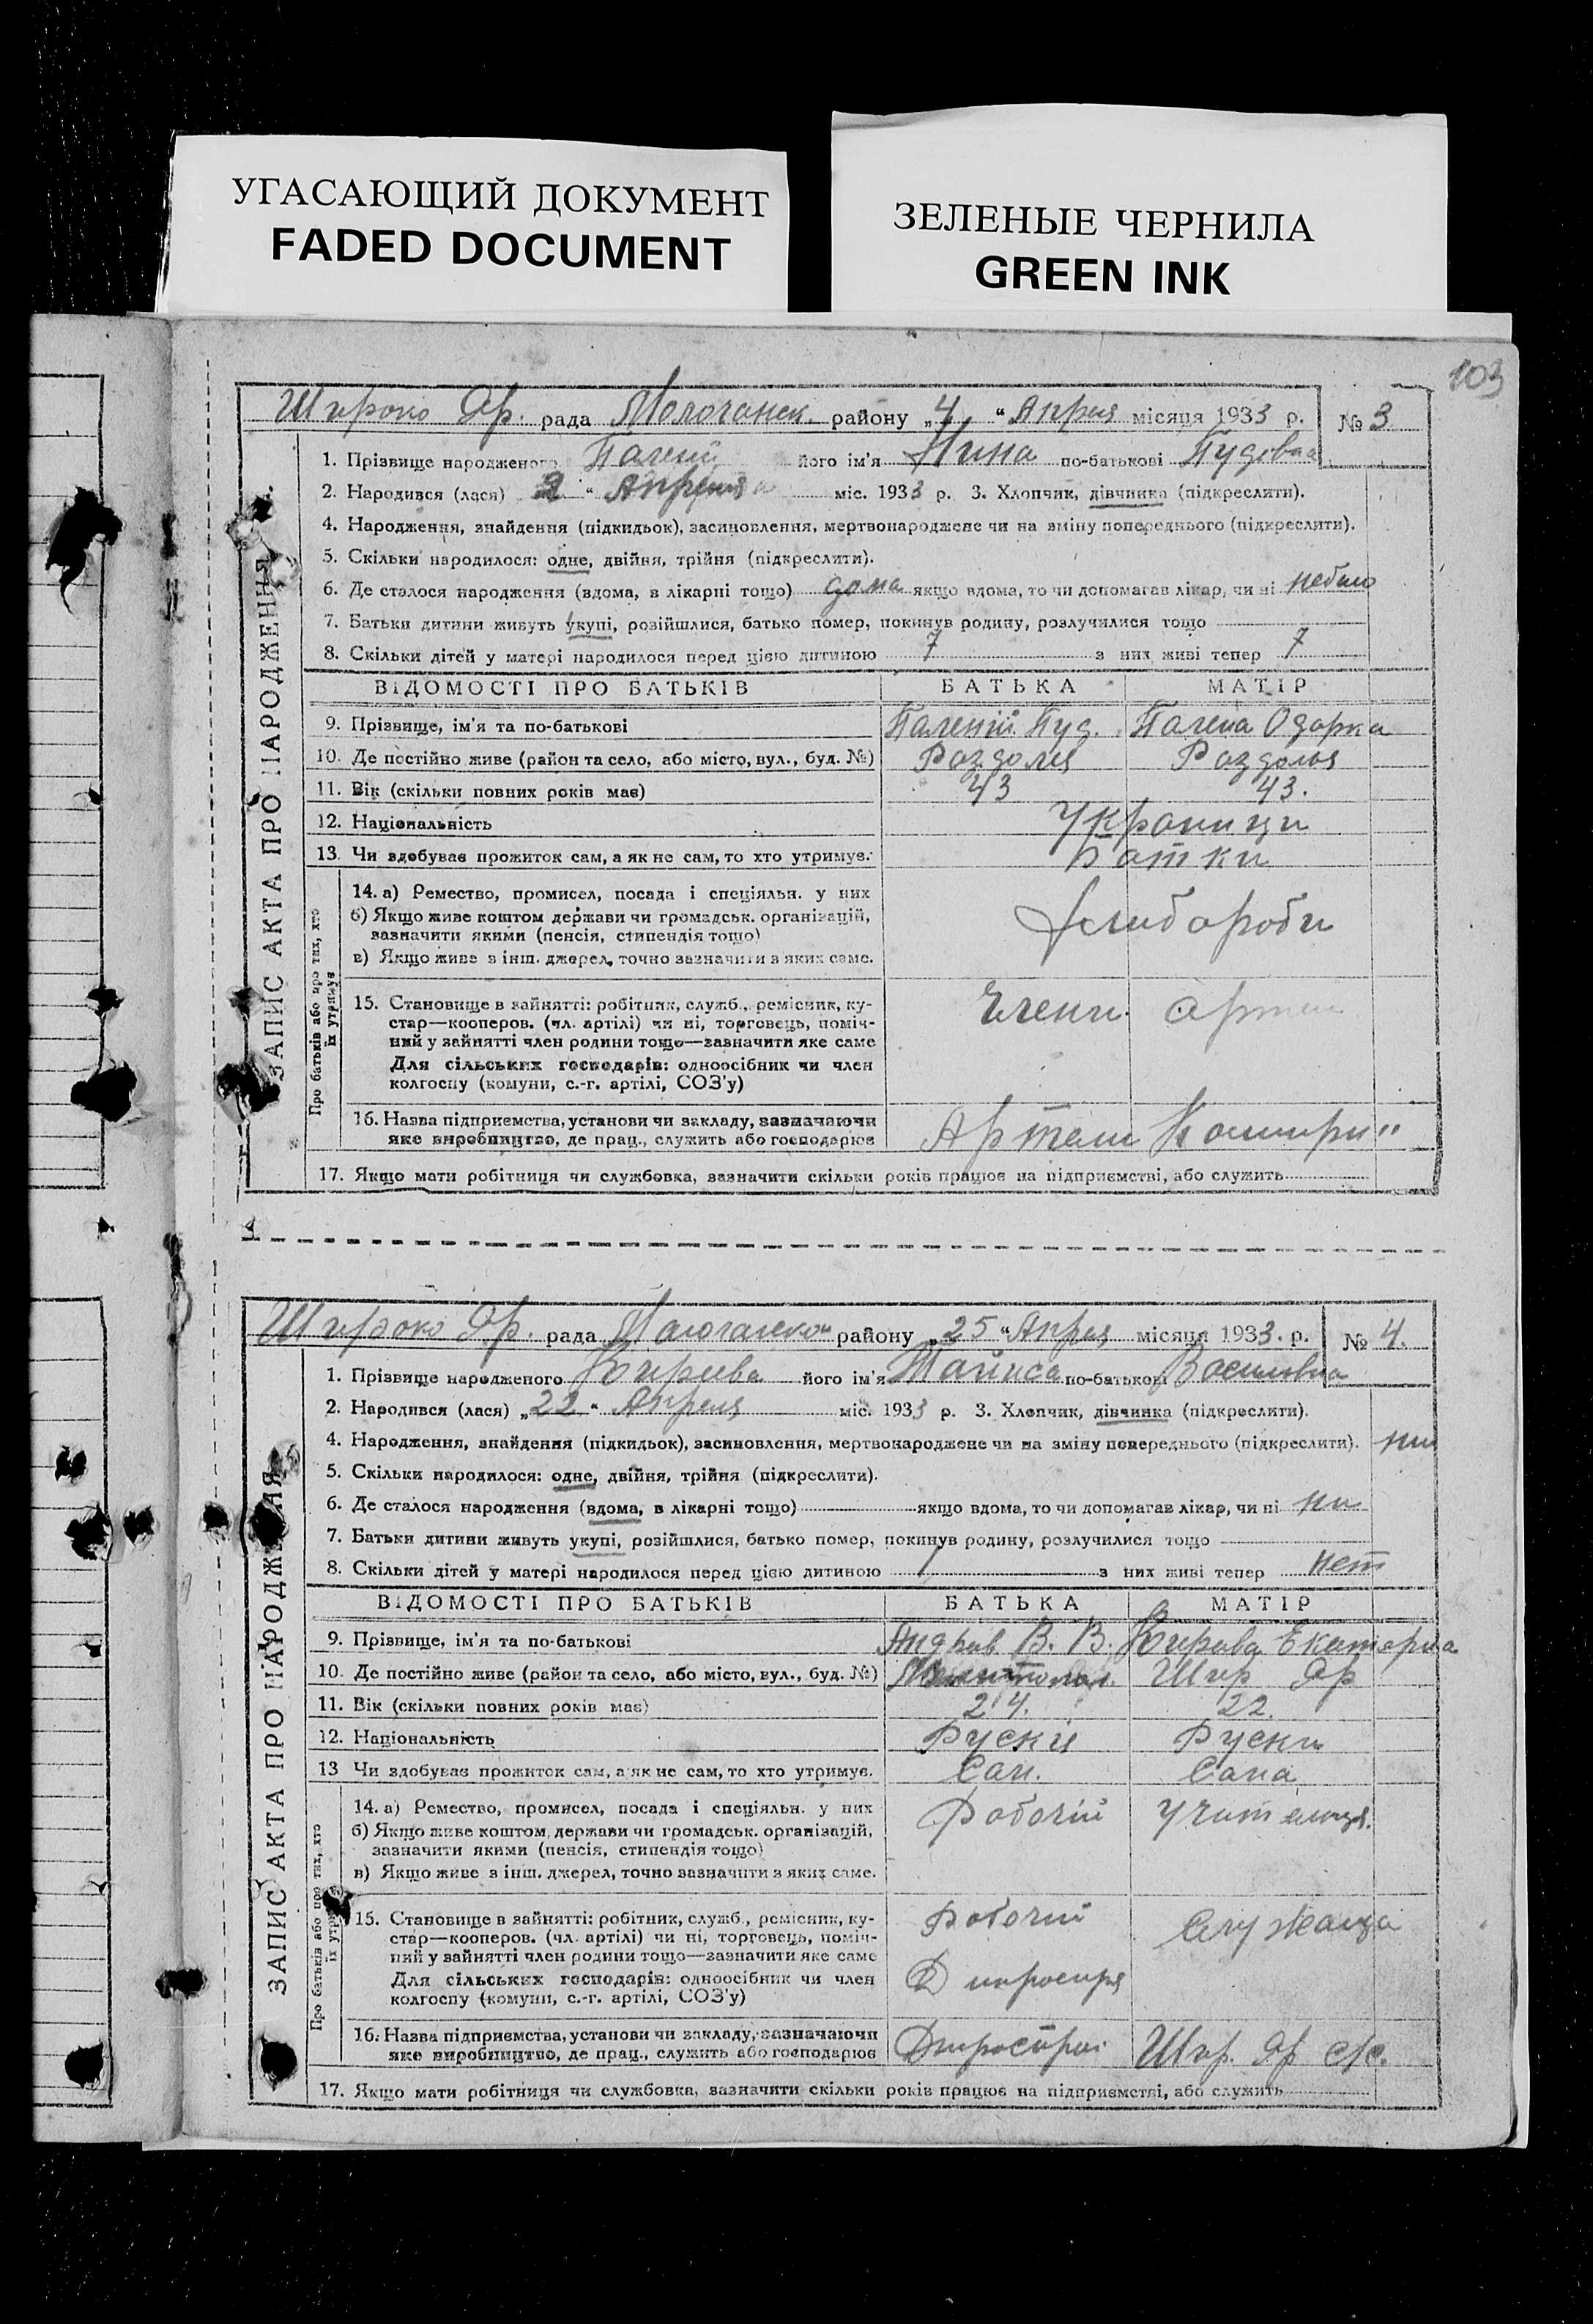 УГАСАЮЩИЙ ДОКУМЕНТ
FADED DOCUMENT
ЗЕЛЕНЫЕ ЧЕРНИЛА
GREEN INK
103
Широко Яр. рада Молочанск. району „4 “ Апреля місяця 1933 р. № 3
ЗАПИС АКТА ПРО НАРОДЖЕННЯ.
1. Прізвище народженого Палений його ім'я Нина по-батькові Пудовна
2. Народився (лася) 2 “ Апреля міс. 1933 р. 3. Хлопчик, дівчинка (підкреслити).
4. Народження, знайдення (підкидьок), засиновлення, мертвонароджене чи на зміну попереднього (підкреслити).
5. Скільки народилося: одне, двійня, трійня (підкреслити).
6. Де сталося народження (вдома, в лікарні тощо) дома якщо вдома, то чи допомагав лікар, чи ні небыло
7. Батьки дитини живуть укупі, розійшлися, батько помер, покинув родину, розлучилися тощо
8. Скільки дітей у матері народилося перед цією дитиною 7 з них живі тепер 7
ВІДОМОСТІ ПРО БАТЬКІВ БАТЬКА МАТІР
9. Прізвище, ім'я та по-батькові Палений Пуд. Палена Одарка
10. Де постійно живе (район та село, або місто, вул., буд. №) Раздолия Раздолия
11. Вік (скільки повних років має) 43 43.
12. Національність Украинци
13. Чи здобуває прожиток сам, а як не сам, то хто утримує. Батки
Про батьків або про тих, хто їх утримує
14. а) Ремество, промисел, посада і спеціяльн. у них
б) Якщо живе коштом держави чи громадськ. організацій,
зазначити якими (пенсія, стипендія тощо)
в) Якщо живе з інш. джерел, точно зазначити з яких саме.
Хлибороби
15. Становище в зайнятті: робітник, служб., ремісник, ку-
стар—кооперов. (чл. артілі) чи ні, торговець, поміч-
ний у зайнятті член родини тощо—зазначити яке саме
Для сільських господарів: одноосібник чи член
колгоспу (комуни, с.-г. артілі, СОЗ'у)
Члени
16. Назва підприємства, установи чи закладу, зазначаючи
яке виробництво, де прац., служить або господарює
17. Якщо мати робітниця чи службовка, зазначити скільки років працює на підприємстві, або служить
Широко Яр. рада району „25 “ Апреля місяця 1933. р. № 4.
ЗАПИС АКТА ПРО НАРОДЖЕННЯ
1. Прізвище народженого Кирева його ім'я Таииса по-батькові
2. Народився (лася) „22 “ Апреля міс. 1933 р. 3. Хлопчик, дівчинка (підкреслити).
4. Народження, знайдення (підкидьок), засиновлення, мертвонароджене чи на зміну попереднього (підкреслити). ни
5. Скільки народилося: одне, двійня, трійня (підкреслити).
6. Де сталося народження (вдома, в лікарні тощо) якщо вдома, то чи допомагав лікар, чи ні ни
7. Батьки дитини живуть укупі, розійшлися, батько помер, покинув родину, розлучилися тощо
8. Скільки дітей у матері народилося перед цією дитиною 1 з них живі тепер нет
ВІДОМОСТІ ПРО БАТЬКІВ БАТЬКА МАТІР
9. Прізвище, ім'я та по-батькові В. В. Екатерина
10. Де постійно живе (район та село, або місто, вул., буд. №) Шир Яр
11. Вік (скільки повних років має) 24. 22.
12. Національність Руский Руски
13 Чи здобуває прожиток сам, а як не сам, то хто утримує. Сам. Сама
Про батьків або про тих, хто їх утримує
14. а) Ремество, промисел, посада і спеціяльн. у них
б) Якщо живе коштом держави чи громадськ. організацій,
зазначити якими (пенсія, стипендія тощо)
в) Якщо живе з інш. джерел, точно зазначити з яких саме.
Робочий
15. Становище в зайнятті: робітник, служб., ремісник, ку-
стар—кооперов. (чл. артілі) чи ні, торговець, поміч-
ний у зайнятті член родини тощо—зазначити яке саме
Для сільських господарів: одноосібник чи член
колгоспу (комуни, с.-г. артілі, СОЗ'у)
Робочий Служаща
16. Назва підприємства, установи чи закладу, зазначаючи
яке виробництво, де прац., служить або господарює
Шир. Яр с/с.
17. Якщо мати робітниця чи службовка, зазначити скільки років працює на підприємстві, або служить